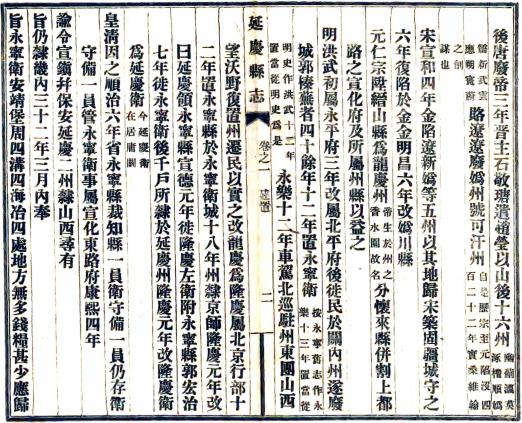 後唐廢帝三年晉主石敬瑭遣趙瑩以山後十六州幽薊瀛莫涿檀順嬀
儒新武雲應朔寰蔚賂遼遼廢嬀州號可汗州自是歷宗至元陷沒四百二十二年實桑維翰
之創謀也
宋宣和四年金陷遼新嬀等五州以其地歸宋築固疆城守之
六年復陷於金金明昌六年改嬀川縣
元仁宗陞縉山縣為龍慶州帝生於州之香水園故名分懷來縣併割上都
路之宣化府及所屬州縣以益之
明洪武初屬永平府三年改屬北平府後徙民於關內州遂廢
城郭榛蕪者四十餘年十二年置永寧衛按永寧舊志作永樂十三年置當從
明史作洪武十二年置當從明史為是永樂十二年車駕北巡駐州東團山西
延慶縣志 卷之一 建置 二
望沃野復置州遷民以實之改龍慶為隆慶屬北京行部十
二年置永寧縣於永寧衛城十八年州隸京師隆慶元年改
曰延慶領永寧縣宣德元年徙隆慶左衛附永寧縣郭宏治
七年徙永寧衛後千戶所隸於延慶州隆慶元年改隆慶衛
為延慶衛今延慶衛在居庸關
皇清因之順治六年省永寧縣裁知縣一員衛守備一員仍存衛
守備一員管永寧衛事屬宣化東路府康熙四年
諭令宣鎮并保安延慶二州隸山西尋有
旨仍隸畿內三十二年三月內奉
旨永寧衛安靖堡周四溝四海冶四處地方無多錢糧甚少應歸